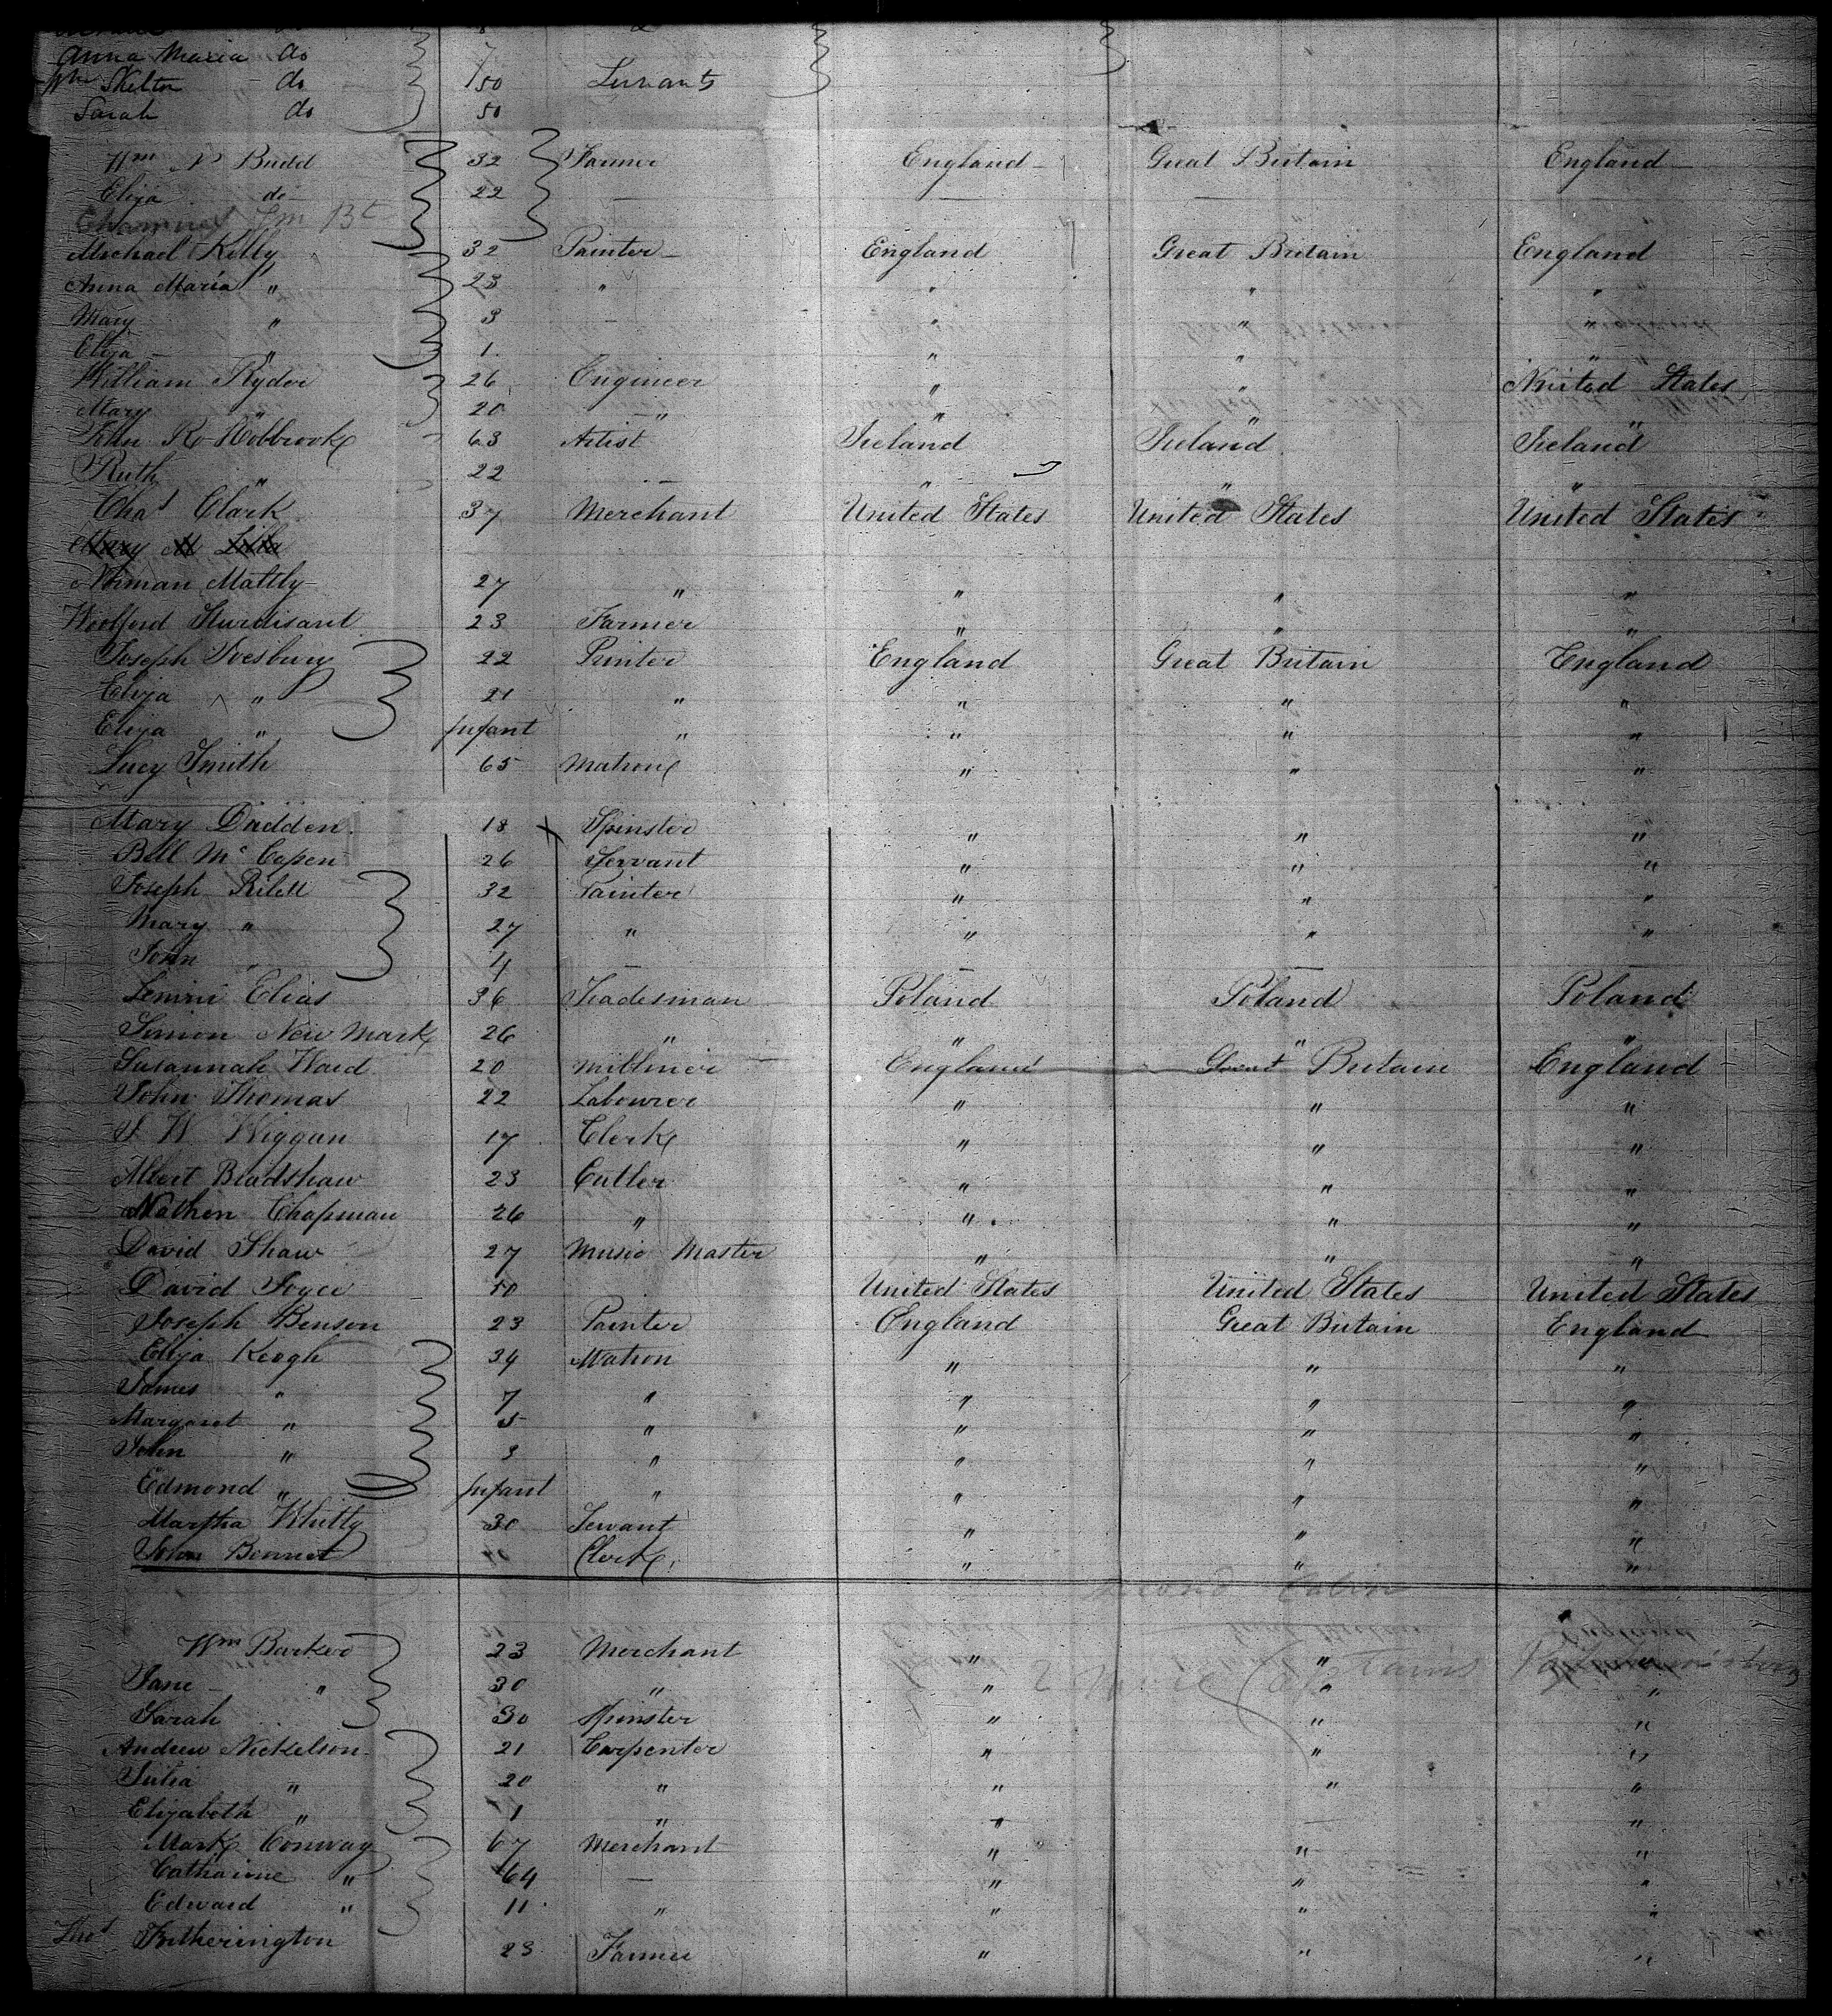 Anna Maria do 7
Wm Skelton do 50 Servants
Sarah do 50
Wm N Budd 32 Farmer England Great Britain England
Eliza do 22 —
Michael Kelly 32 Painter England Great Britain England
Anna Maria " 23 " " " "
Mary " 3 — " " "
Eliza " 1 " " "
William Ryder 26 Engineer " " United States
Mary " 20 " " "
John Ro Holbrook 63 Artist Ireland Ireland Ireland
Ruth " 22 — " " "
Chas Clark 37 Merchant United States United States United States
Norman Mattly 27 " " " "
Woolford Sturdisant 23 Farmer " " "
Joseph Ivesbury 22 Printer England Great Britain England
Eliza " 21 " " " "
Eliza " Infant " " " "
Lucy Smith 65 Matron " " "
Mary Dadden 18 Spinster " " "
Bell Mc Capen 26 Servant " " "
Joseph Rilett 32 Painter " " "
Mary " 27 " " " "
John " 4 — — — —
Elias 36 Tradesman Poland Poland Poland
Simon New Mark 26 " " " "
Susannah Ward 20 Milliner England Great Britain England
John Thomas 22 Labourer " " "
W Wiggan 17 Clerk " " "
Albert Bradshaw 23 Cutler " " "
Nathen Chapman 26 " " " "
David Shaw 27 Music Master " " "
David Joyce 50 United States United States United States
Joseph Benson 23 Painter England Great Britain England
Eliza Keogh 34 Matron " " "
James " 7 " " " "
Margaret " 5 " " " "
John " 3 " " " "
Edmond " Infant " " " "
Martha Whitty 30 Servant " " "
John Bennet Clerk " " "
Second Cabin
Wm Barker 23 Merchant " " "
Jane " 30 " " " "
Sarah 30 Spinster " " "
Andrew Nickelson 21 Carpenter " " "
Julia " 20 " " " "
Elizabeth " 1 " " — "
Mark Conway 67 Merchant " " "
Catharine " 64 — " " "
Edward " 11 " " " "
Thos Fetherington 23 Farmer " " "